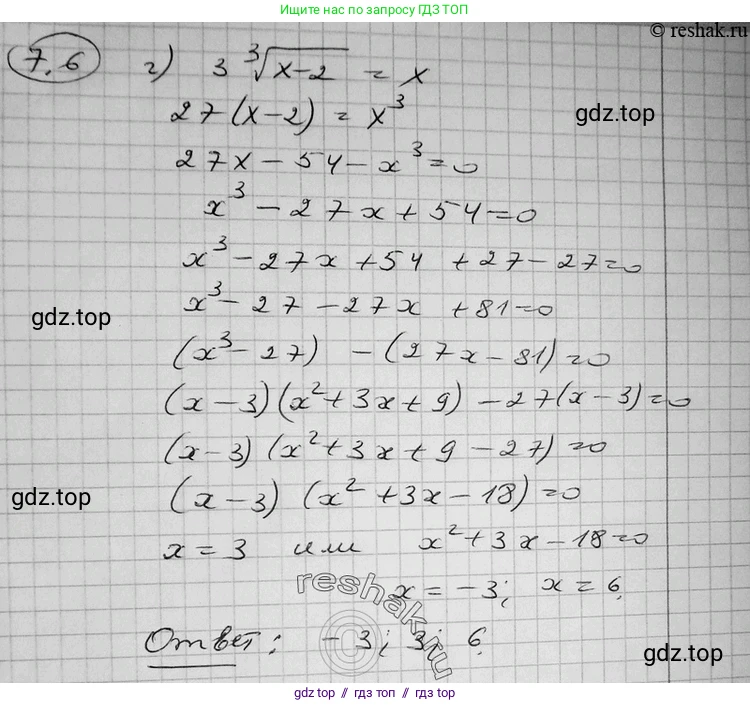 Ищите нас по запросу ГДЗ ТОП
© reshak.ru
7.6 г) 3∛(x-2) = x
gdz.top
27(x-2) = x³
27x - 54 - x³ = 0
x³ - 27x + 54 = 0
x³ - 27x + 54 + 27 - 27 = 0
x³ - 27 - 27x + 81 = 0
gdz.top
(x³ - 27) - (27x - 81) = 0
(x - 3)(x² + 3x + 9) - 27(x - 3) = 0
(x - 3)(x² + 3x + 9 - 27) = 0
(x - 3)(x² + 3x - 18) = 0
gdz.top
x = 3 или x² + 3x - 18 = 0
x = -3; x = 6.
reshak.ru
Ответ: -3; 3; 6.
gdz.top
gdz.top // gdz.top // gdz.top